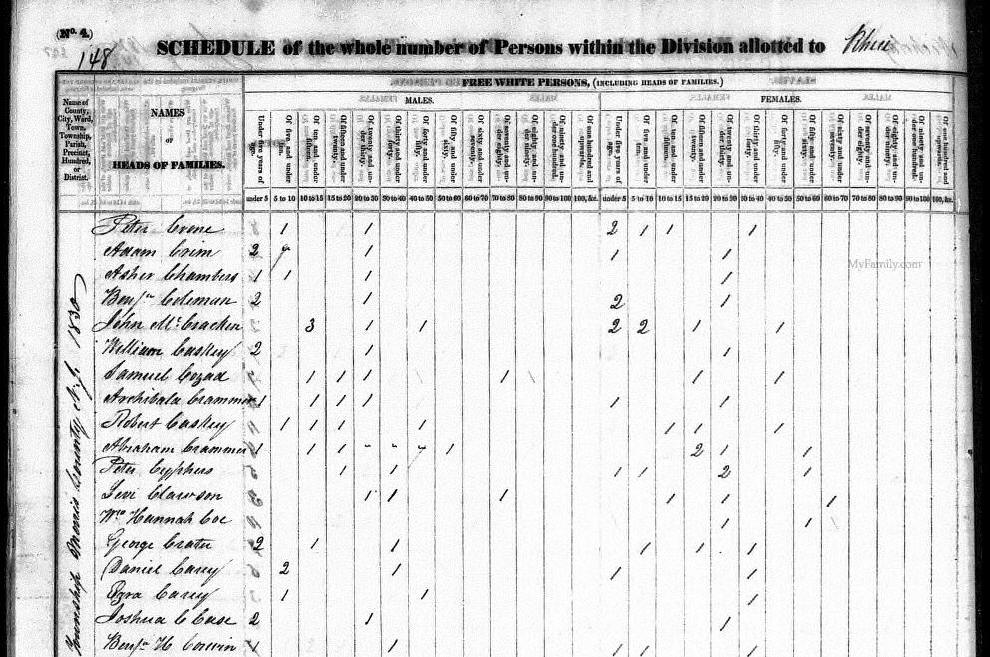 (No. 4.)
148
SCHEDULE of the whole number of Persons within the Division allotted to
FREE WHITE PERSONS, (INCLUDING HEADS OF FAMILIES.)
MALES. FEMALES.
Name of County, City, Ward, Town, Township, Parish, Precinct, Hundred, or District.
NAMES
OF
HEADS OF FAMILIES.
Under five years of age. Of five and under ten. Of ten and under fifteen. Of fifteen and under twenty. Of twenty and under thirty. Of thirty and under forty. Of forty and under fifty. Of fifty and under sixty. Of sixty and under seventy. Of seventy and under eighty. Of eighty and under ninety. Of ninety and under one hundred. Of one hundred and upwards. Under five years of age. Of five and under ten. Of ten and under fifteen. Of fifteen and under twenty. Of twenty and under thirty. Of thirty and under forty. Of forty and under fifty. Of fifty and under sixty. Of sixty and under seventy. Of seventy and under eighty. Of eighty and under ninety. Of ninety and under one hundred. Of one hundred and upwards.
under 5 5 to 10 10 to 15 15 to 20 20 to 30 30 to 40 40 to 50 50 to 60 60 to 70 70 to 80 80 to 90 90 to 100 100, &c. under 5 5 to 10 10 to 15 15 to 20 20 to 30 30 to 40 40 to 50 50 to 60 60 to 70 70 to 80 80 to 90 90 to 100 100, &c.
Township Morris County N.J. 1830
Peter 1 1 2 1 1 1
Adam Crim 2 1 1 1
Asher Chambers 1 1 1 1
Benjn Coleman 2 1 2 1
John McCracken 3 1 1 2 2 1 1
William Caskey 2 1 1
Samuel Cozad 1 1 1 1 1 1
Archibald Crammer 1 1 1 1 1 1
Robert Caskey 1 1 1 1 1 1 1
Abraham Crammer 1 1 1 1 2 1 1
Peter Cyphers 1 1 1 1 2 1
Levi Clawson 1 1 1 1 1 1
Hannah Coe 1 1
George Crater 2 1 1 1 1 1
Daniel Carey 2 1 1 1
Ezra Carey 1 1 1
Joshua C Case 2 1 1
Benjn H Corwin 1 1 1 1 1
MyFamily.com